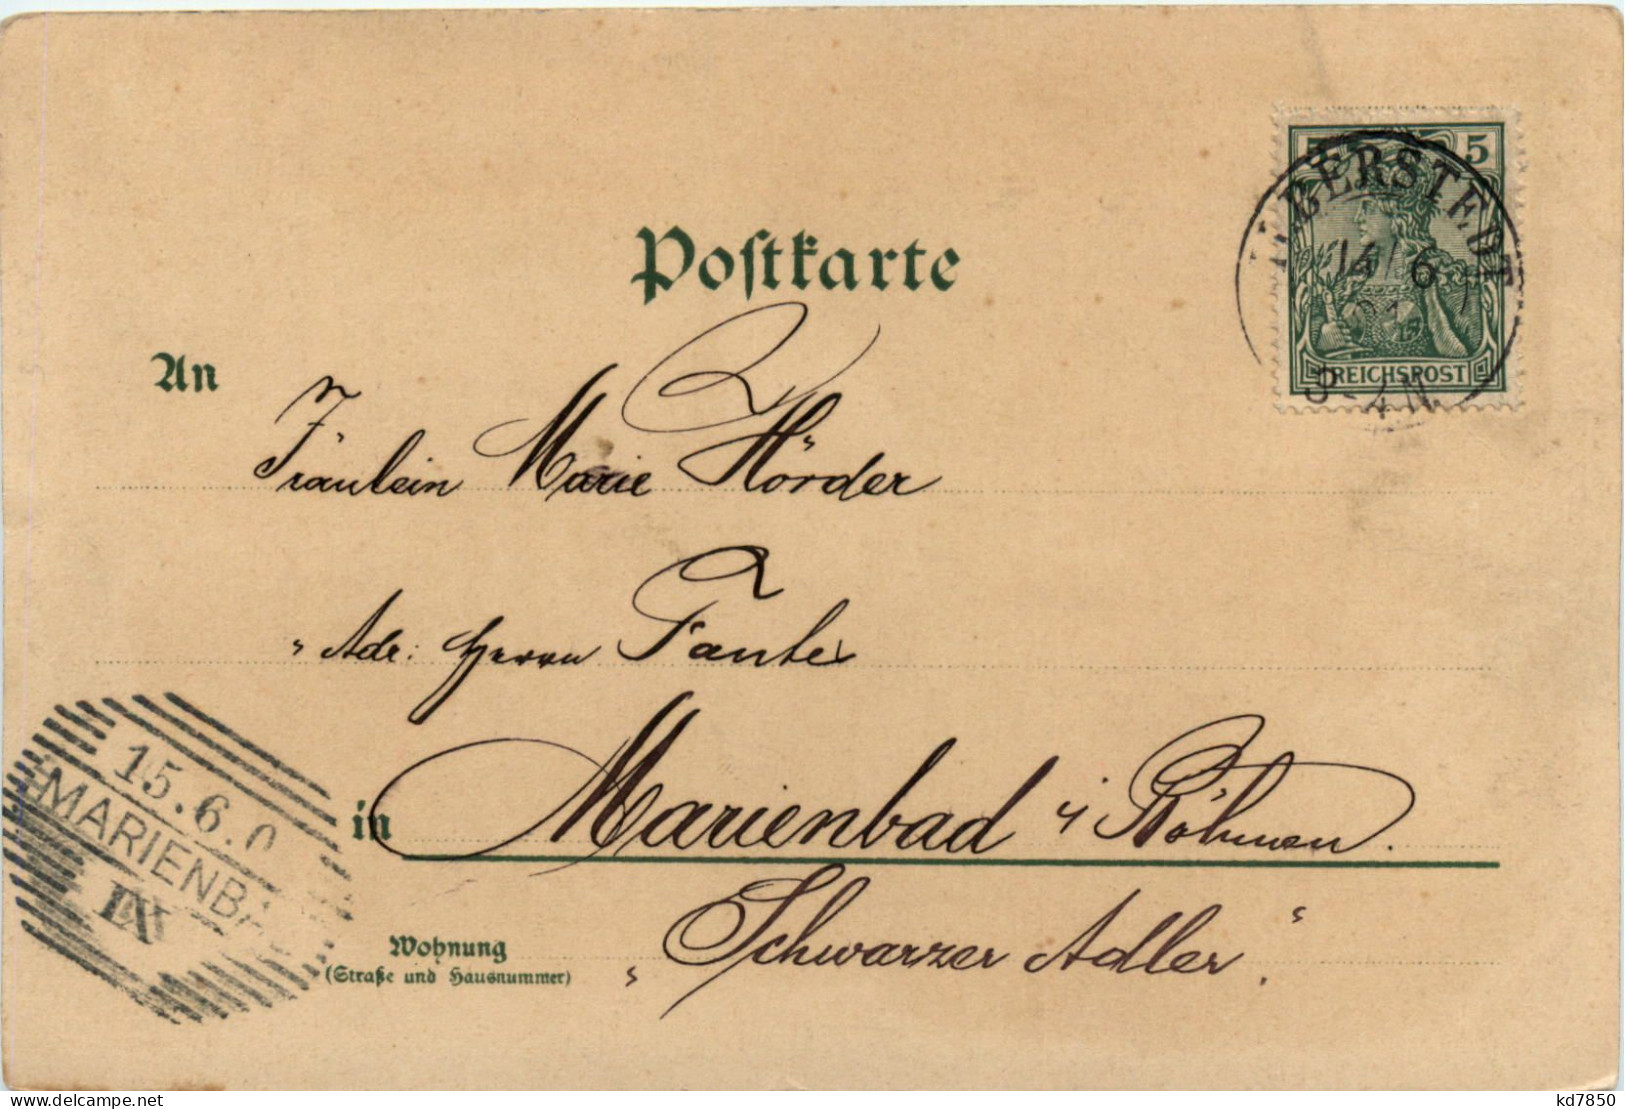 5 5
REICHSPOST
14/6
Postkarte
An
Fräulein Marie Hörder
Adr: Herrn
15.6.0
MARIENBA
IX
in Marienbad i/Böhmen.
Wohnung
(Straße und Hausnummer)
„Schwarzer Adler“.
delcampe.net
kd7850